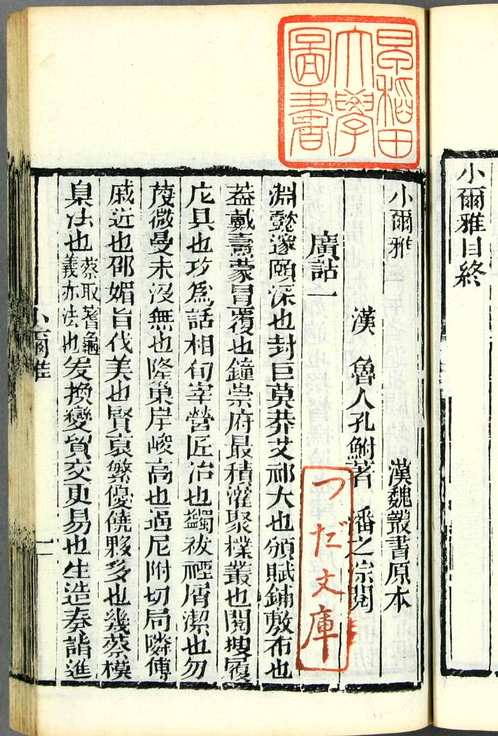 小爾雅目終
早稻田
大學
圖書
小爾雅 漢魏叢書原本
漢 魯人孔鮒著 潘之淙閱
つだ文庫
廣詁一
淵懿邃賾深也封巨莫莽艾祁大也頒賦鋪敷布也
蓋戴燾蒙冒覆也鐘崇府最積灌聚樸叢也閱搜履
庀具也攻爲話相旬宰營匠冶也蠲祓禋屑潔也勿
蔑微曼末沒無也隆巢岸峻高也邇尼附切局隣傅
戚近也邵媚旨伐美也賢裒繁優饒夥多也幾蔡模
臬法也蔡取蓍龜義亦法也爰換變貿交更易也生造奏詣進
小爾雅 一